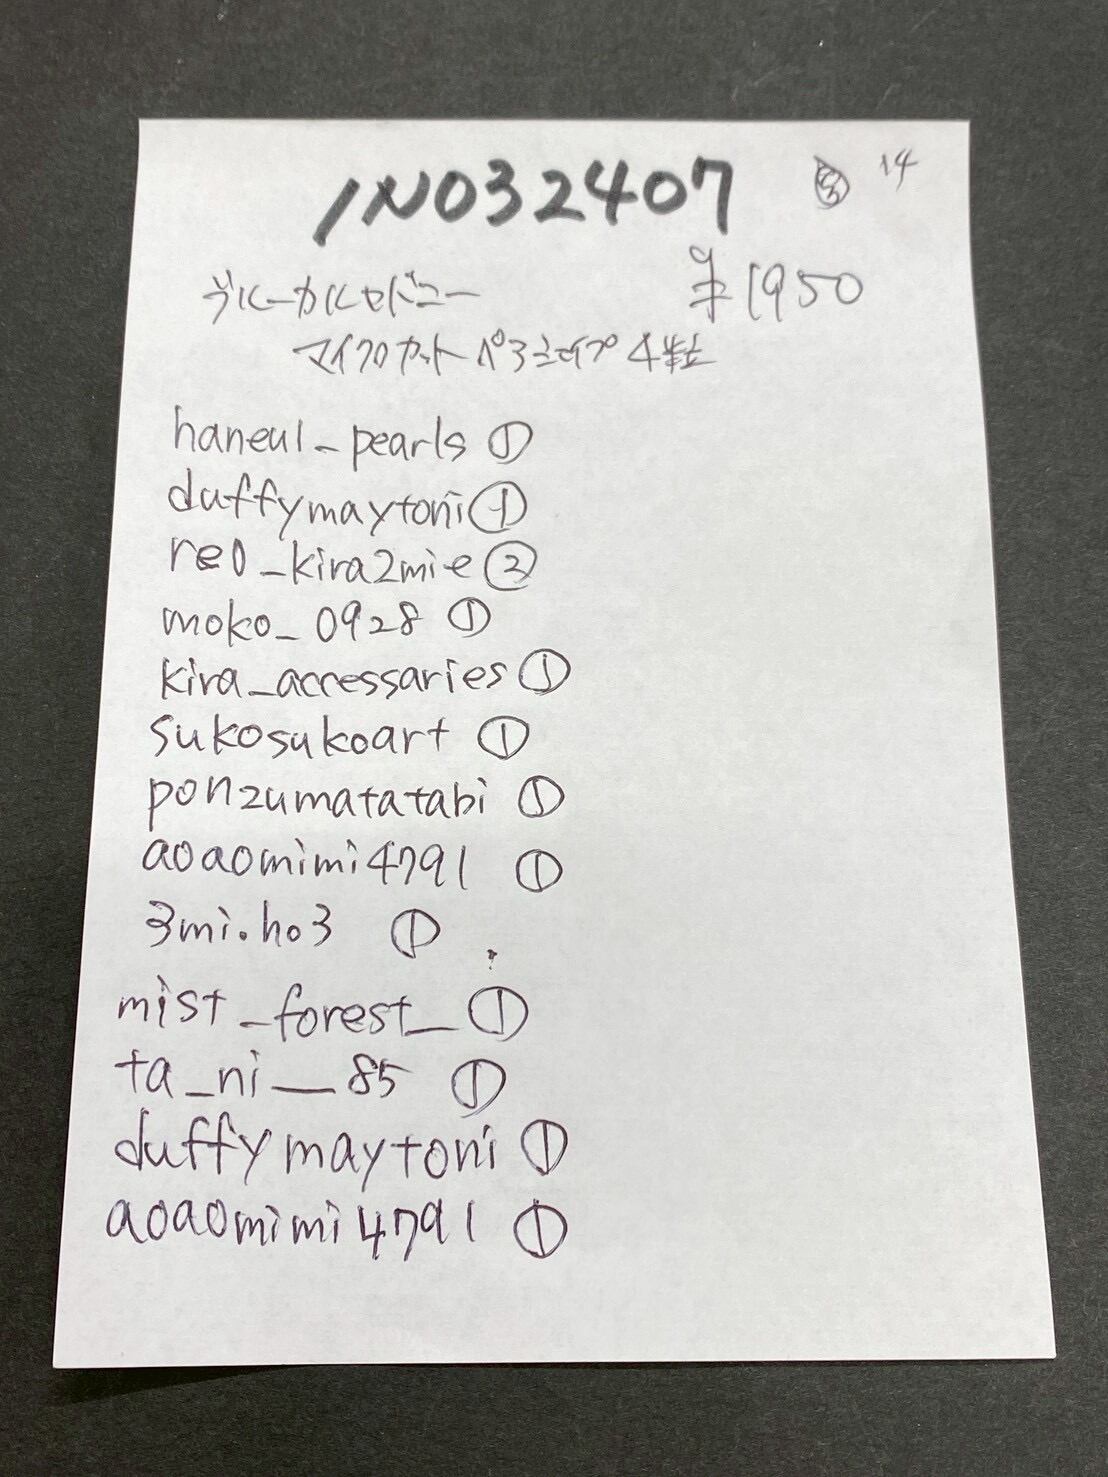 INO32407 14
ブルーカルセドニー ¥1950
マイクロカット ペアシェイプ 4粒
haneul_pearls ①
duffymaytoni ①
reo_kira2mie ②
moko_0928 ①
kira_accessaries ①
sukosukoart ①
ponzumatatabi ①
aoaomimi4791 ①
3mi.ho3 ①
mist_forest_ ①
ta_ni__85 ①
duffymaytoni ①
aoaomimi4791 ①